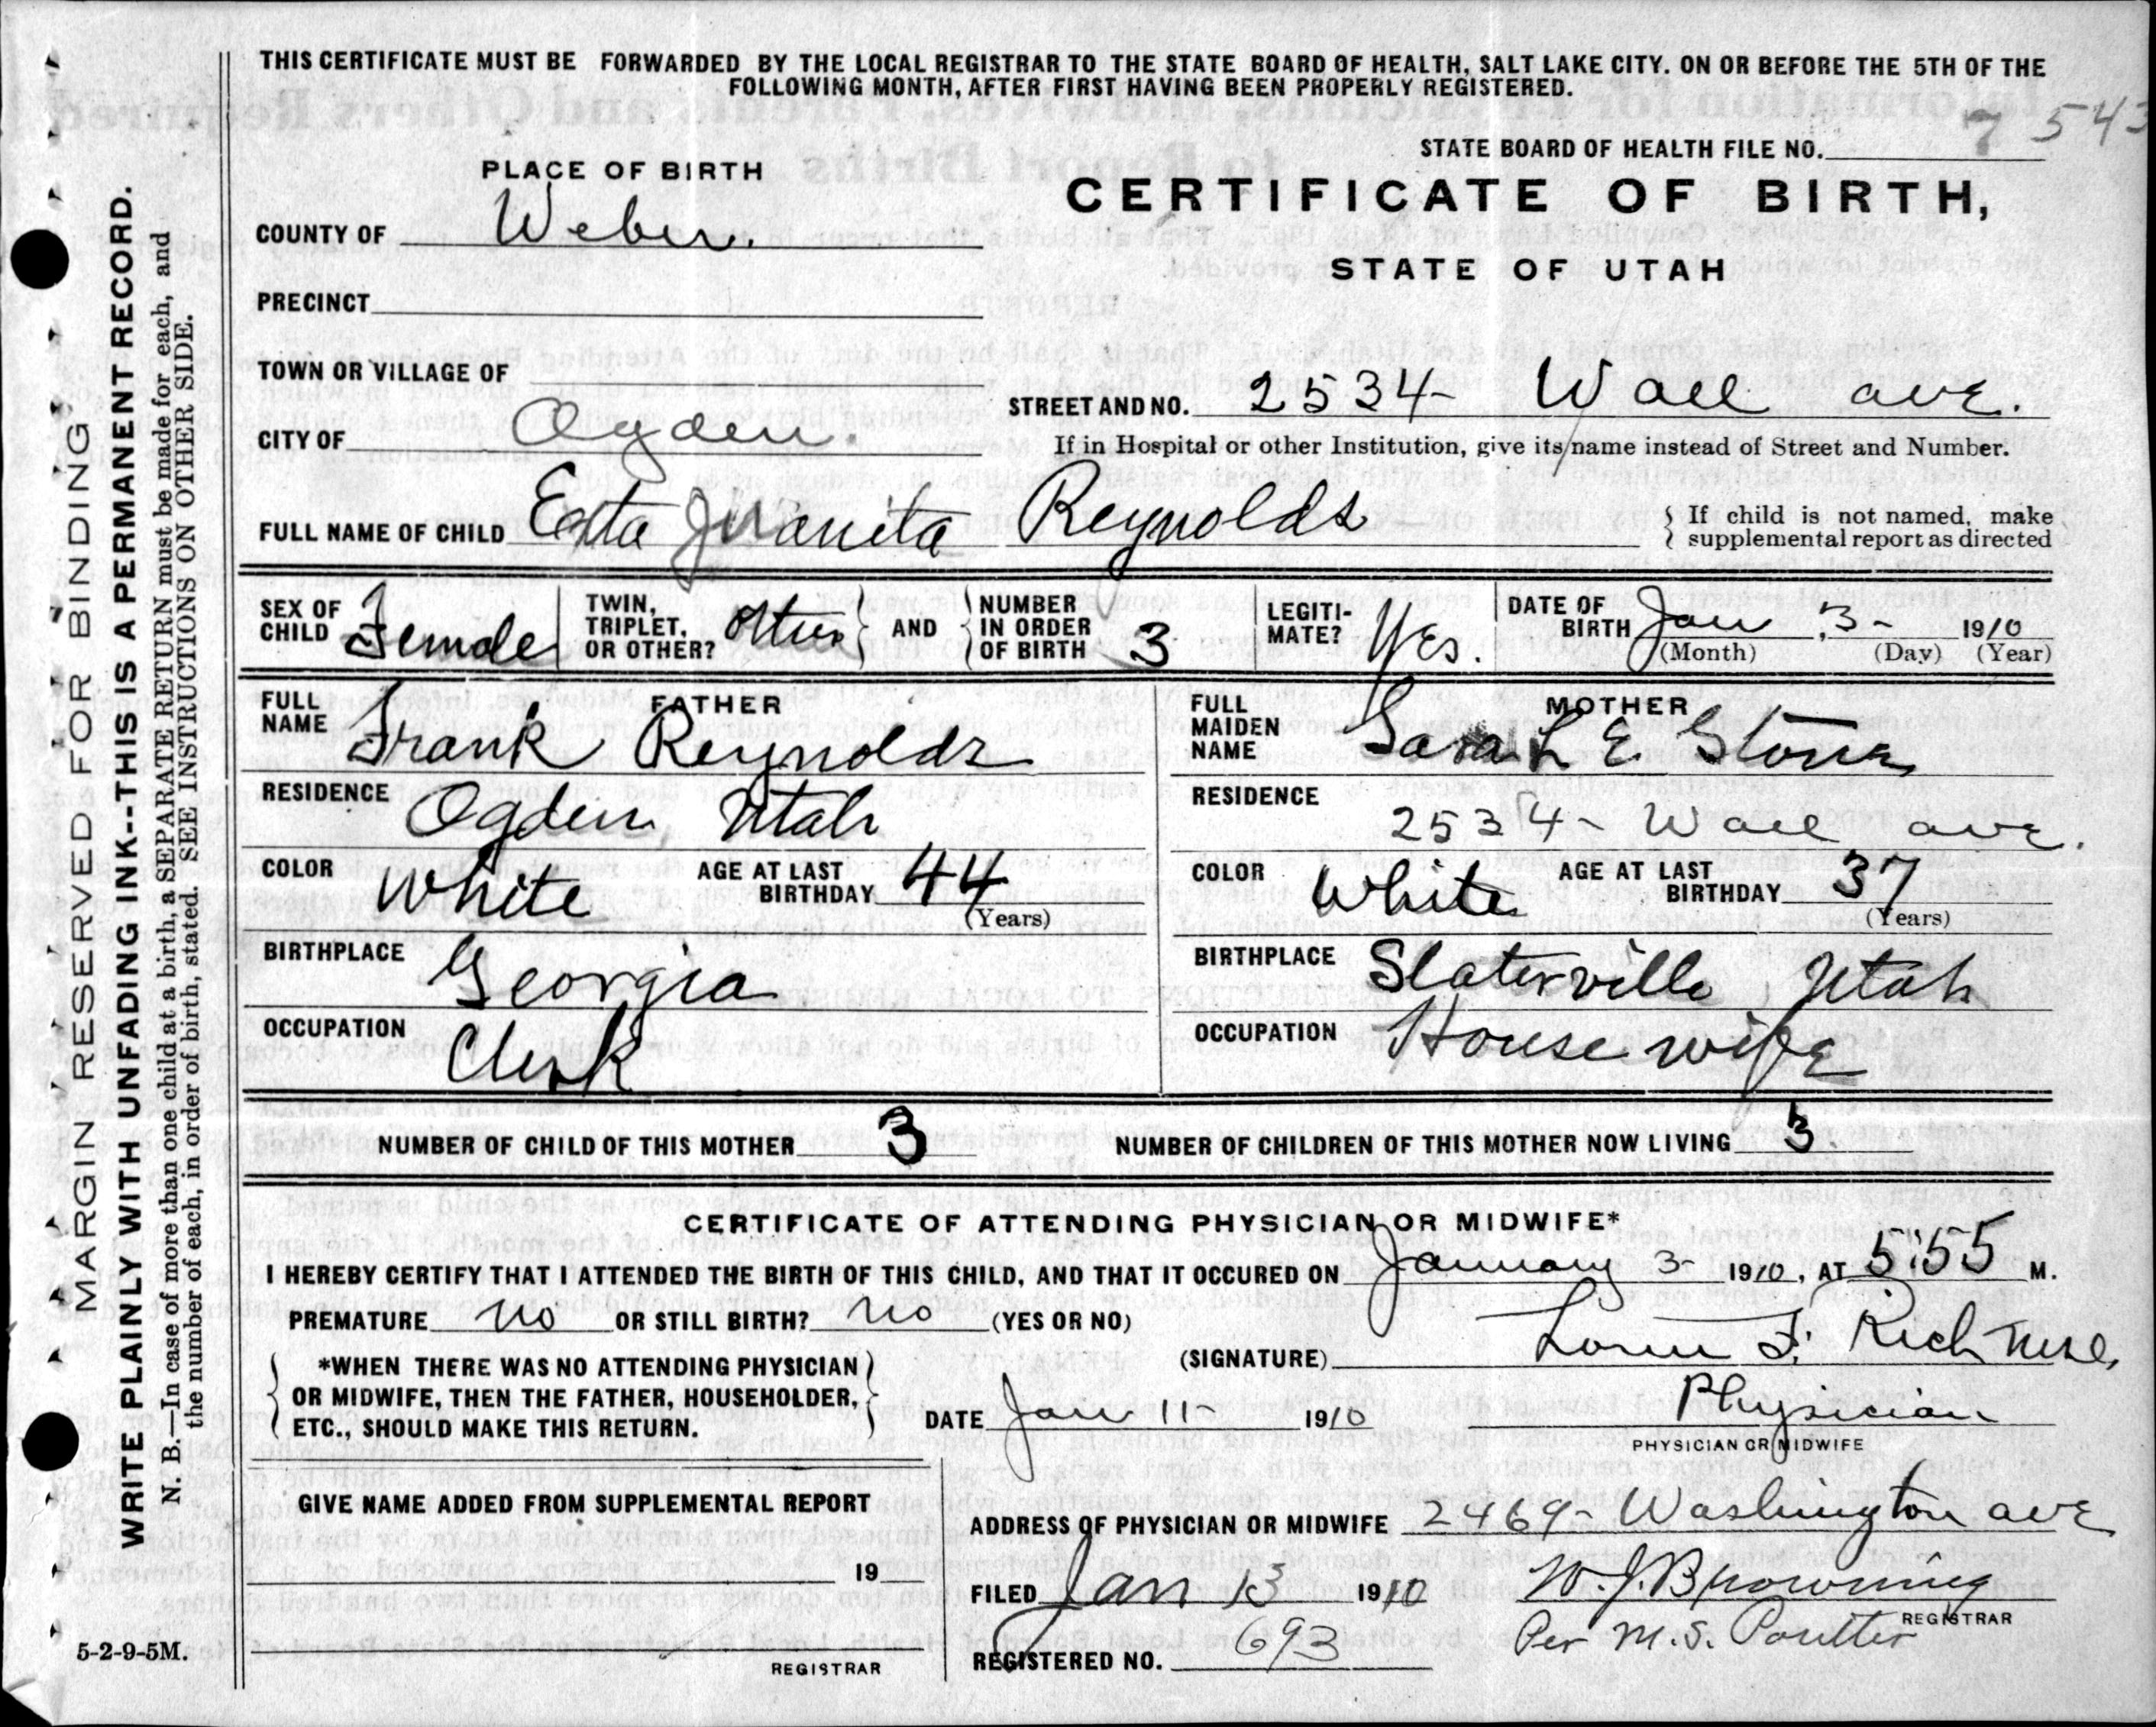 THIS CERTIFICATE MUST BE FORWARDED BY THE LOCAL REGISTRAR TO THE STATE BOARD OF HEALTH, SALT LAKE CITY. ON OR BEFORE THE 5TH OF THE
FOLLOWING MONTH, AFTER FIRST HAVING BEEN PROPERLY REGISTERED.
STATE BOARD OF HEALTH FILE NO. 7 543
PLACE OF BIRTH
CERTIFICATE OF BIRTH,
STATE OF UTAH
COUNTY OF Weber.
PRECINCT
TOWN OR VILLAGE OF
CITY OF Ogden.
STREET AND NO. 2534- Wall ave.
If in Hospital or other Institution, give its name instead of Street and Number.
FULL NAME OF CHILD Etta Juanita Reynolds
If child is not named, make
supplemental report as directed
SEX OF CHILD Female
TWIN, TRIPLET, OR OTHER? Other
AND NUMBER IN ORDER OF BIRTH 3
LEGITI-MATE? Yes.
DATE OF BIRTH Jan 3- 1910
(Month) (Day) (Year)
FATHER
FULL NAME Frank Reynolds
RESIDENCE Ogden, Utah
COLOR White AGE AT LAST BIRTHDAY 44
(Years)
BIRTHPLACE Georgia
OCCUPATION Clerk
MOTHER
FULL MAIDEN NAME Sarah E. Stone
RESIDENCE 2534- Wall ave.
COLOR White AGE AT LAST BIRTHDAY 37
(Years)
BIRTHPLACE Slaterville Utah
OCCUPATION Housewife
NUMBER OF CHILD OF THIS MOTHER 3
NUMBER OF CHILDREN OF THIS MOTHER NOW LIVING 3
CERTIFICATE OF ATTENDING PHYSICIAN OR MIDWIFE*
I HEREBY CERTIFY THAT I ATTENDED THE BIRTH OF THIS CHILD, AND THAT IT OCCURED ON January 3- 1910, AT 5:55 M.
PREMATURE no OR STILL BIRTH? no (YES OR NO)
*WHEN THERE WAS NO ATTENDING PHYSICIAN
OR MIDWIFE, THEN THE FATHER, HOUSEHOLDER,
ETC., SHOULD MAKE THIS RETURN.
(SIGNATURE) F. Rich
DATE Jan 11- 1910
Physician
PHYSICIAN OR MIDWIFE
GIVE NAME ADDED FROM SUPPLEMENTAL REPORT
19
REGISTRAR
ADDRESS OF PHYSICIAN OR MIDWIFE 2469- Washington ave
FILED Jan 13 1910 W. J. Browning
REGISTRAR
Per M. S. Poulter
REGISTERED NO. 693
5-2-9-5M.
MARGIN RESERVED FOR BINDING
WRITE PLAINLY WITH UNFADING INK--THIS IS A PERMANENT RECORD.
N. B.--In case of more than one child at a birth, a SEPARATE RETURN must be made for each, and
the number of each, in order of birth, stated. SEE INSTRUCTIONS ON OTHER SIDE.